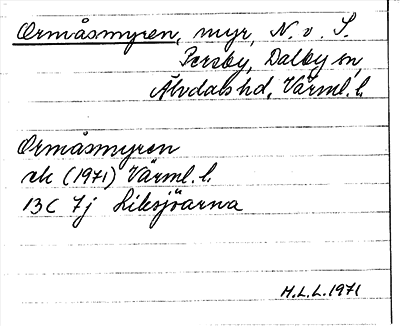 Ormåsmyren, myr, N. v. S.
Persby, Dalby sn,
Älvdals hd, Värml. l.
Ormåsmyren
ek (1971) Värml. l.
13C 7j Liksjöarna
H.L.L. 1971